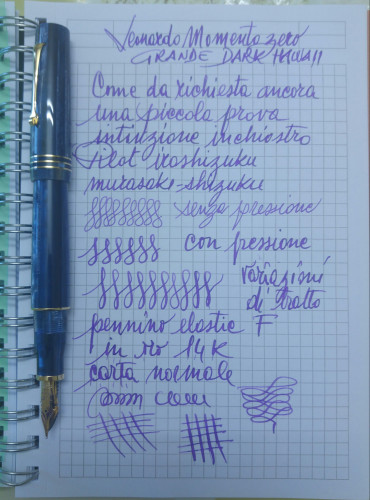 Leonardo Momento zero
GRANDE DARK HAWAII
Come da richiesta ancora
una piccola prova
intinzione inchiostro
Pilot iroshizuku
murasaki-shizuku
senza pressione
con pressione
variazioni
di tratto
pennino elastic F
in oro 14K
carta normale